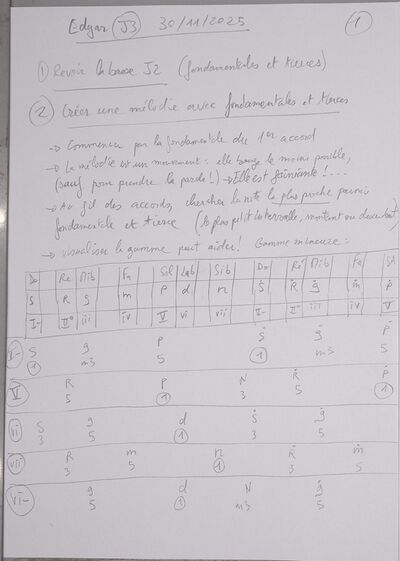 Edgar J3 30/11/2025 1
1 Revoir la basse J2 (fondamentales et tierces)
2 Créer une mélodie avec fondamentales et tierces
→ Commencer par la fondamentale du 1er accord
→ La mélodie est un mouvement : elle bouge le moins possible,
(sauf pour prendre la parole !) → Elle est fainéante !...
→ Au fil des accords, chercher la note la plus proche parmi
fondamentale et tierce (le plus petit intervalle, montant ou descendant)
→ visualiser la gamme peut aider ! Gamme mineure :
Do Ré Mib Fa Sol Lab Sib Do Ré Mib Fa Sol
S R g m P d n Ṡ Ṙ ġ ṁ Ṗ
I- II° iii iv V vi vii I- II° iii iv V
I- S g P Ṡ ġ Ṗ
1 m3 5 1 m3 5
V R P N Ṙ Ṗ
5 1 3 5 1
vi S g d Ṡ ġ
3 5 1 3 5
vii R m n Ṙ ṁ
3 5 1 3 5
vi- g d N ġ
5 1 m3 5